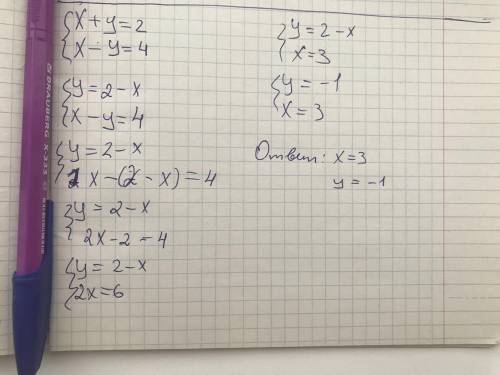 {x + y = 2
{x - y = 4
{y = 2 - x
{x - y = 4
{y = 2 - x
x - (2 - x) = 4
{y = 2 - x
2x - 2 = 4
{y = 2 - x
2x = 6
{y = 2 - x
x = 3
{y = -1
x = 3
Ответ: x = 3
y = -1
BRAUBERG X-333